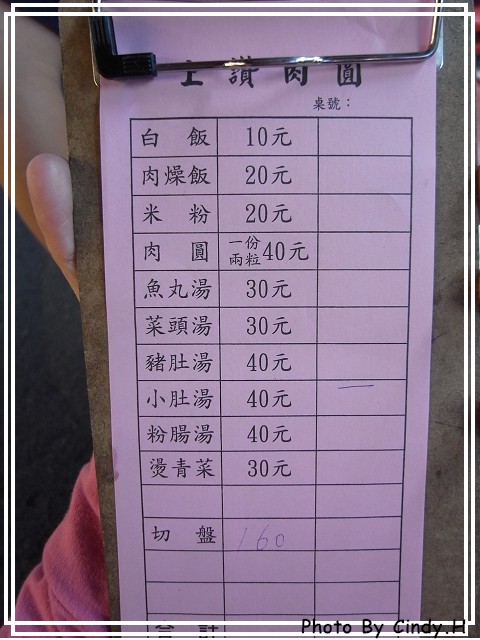 上讚肉圓
桌號：
白飯 10元
肉燥飯 20元
米粉 20元
肉圓 一份兩粒40元
魚丸湯 30元
菜頭湯 30元
豬肚湯 40元
小肚湯 40元
粉腸湯 40元
燙青菜 30元
切盤 160
合計
Photo By Cindy.H